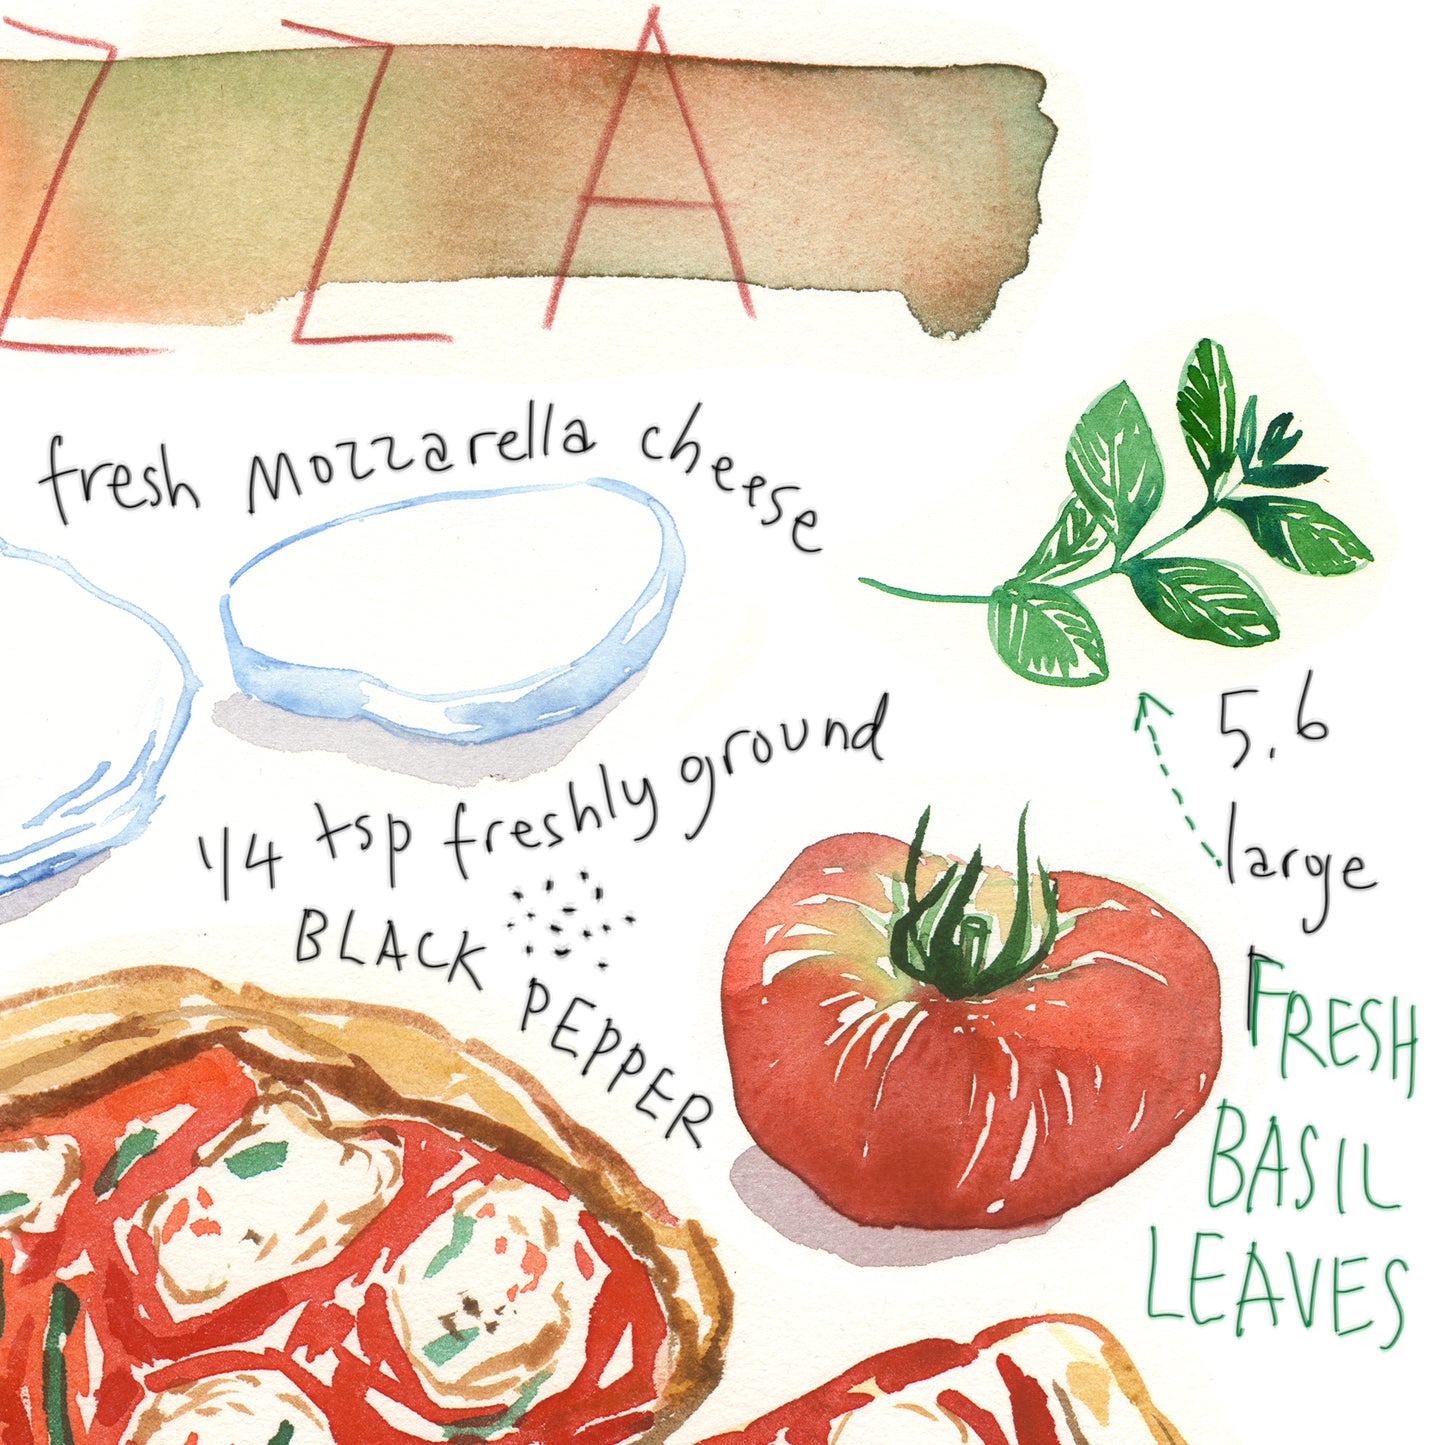 ZZA
fresh mozzarella cheese
1/4 tsp freshly ground
BLACK
PEPPER
5,6
large
FRESH
BASIL
LEAVES